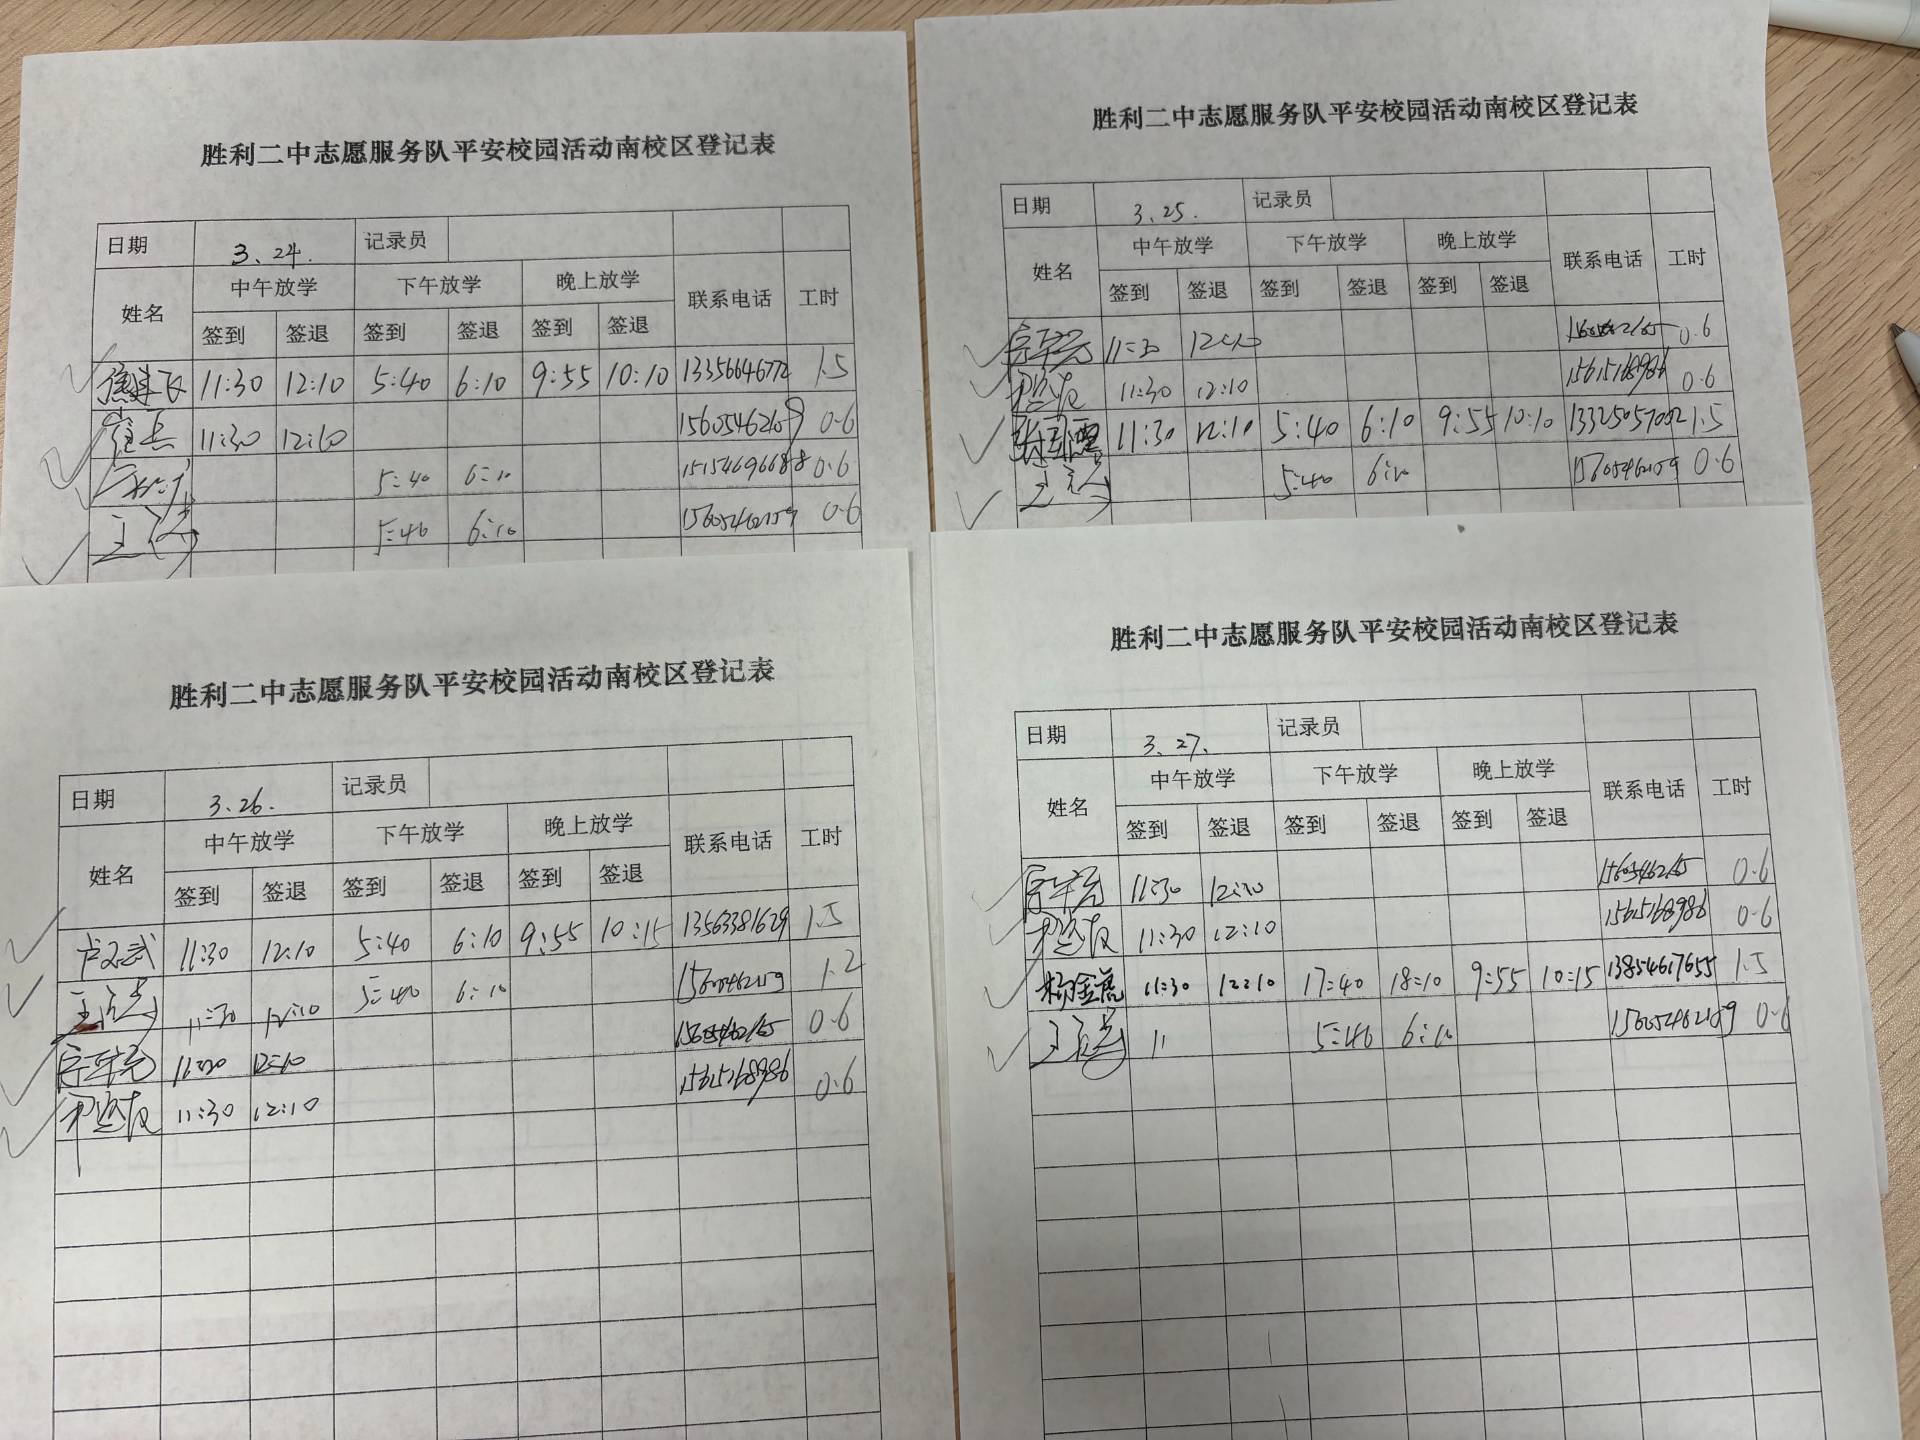 胜利二中志愿服务队平安校园活动南校区登记表
日期 3、24. 记录员
姓名 中午放学 下午放学 晚上放学 联系电话 工时
签到 签退 签到 签退 签到 签退
11:30 12:10 5:40 6:10 9:55 10:10 13356646772 1.5
11:30 12:10 15605462109 0.6
5:40 6:10 15154696688 0.6
5:40 6:10 15605462159 0.6
胜利二中志愿服务队平安校园活动南校区登记表
日期 3、25. 记录员
姓名 中午放学 下午放学 晚上放学 联系电话 工时
签到 签退 签到 签退 签到 签退
11:30 12:10 0.6
11:30 12:10 15615168986 0.6
11:30 12:10 5:40 6:10 9:55 10:10 13325057092 1.5
5:40 6:10 15605462159 0.6
胜利二中志愿服务队平安校园活动南校区登记表
日期 3、26. 记录员
姓名 中午放学 下午放学 晚上放学 联系电话 工时
签到 签退 签到 签退 签到 签退
11:30 12:10 5:40 6:10 9:55 10:15 13563381629 1.5
11:30 12:10 5:40 6:10 15605462159 1.2
11:30 12:10 15605462165 0.6
11:30 12:10 15615168986 0.6
胜利二中志愿服务队平安校园活动南校区登记表
日期 3、27、 记录员
姓名 中午放学 下午放学 晚上放学 联系电话 工时
签到 签退 签到 签退 签到 签退
11:30 12:10 15605462165 0.6
11:30 12:10 15615168986 0.6
杨金虎 11:30 12:10 17:40 18:10 9:55 10:15 13854617655 1.5
11 5:40 6:10 15605462159 0.6